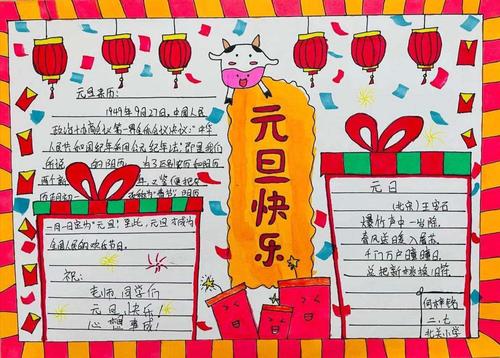 元旦来历:
1949年9月27日,中国人民
政治协商会议第一届全体会议决议:"中华
人民共和国纪年采用公元纪年法",即是我们
所说的阳历 为了区别农历和阳历
两个新年,又鉴 便把农
历初一 称为"春节",阳历
一月一日定为"元旦",至此,元旦才成为
全国人民的欢乐节日。
祝:
老师、同学们
元旦快乐!
心想事成!
元旦快乐
元日
(北宋)王安石
爆竹声中一岁除,
春风送暖入屠苏。
千门万户曈曈日,
总把新桃换旧符。
北关小学